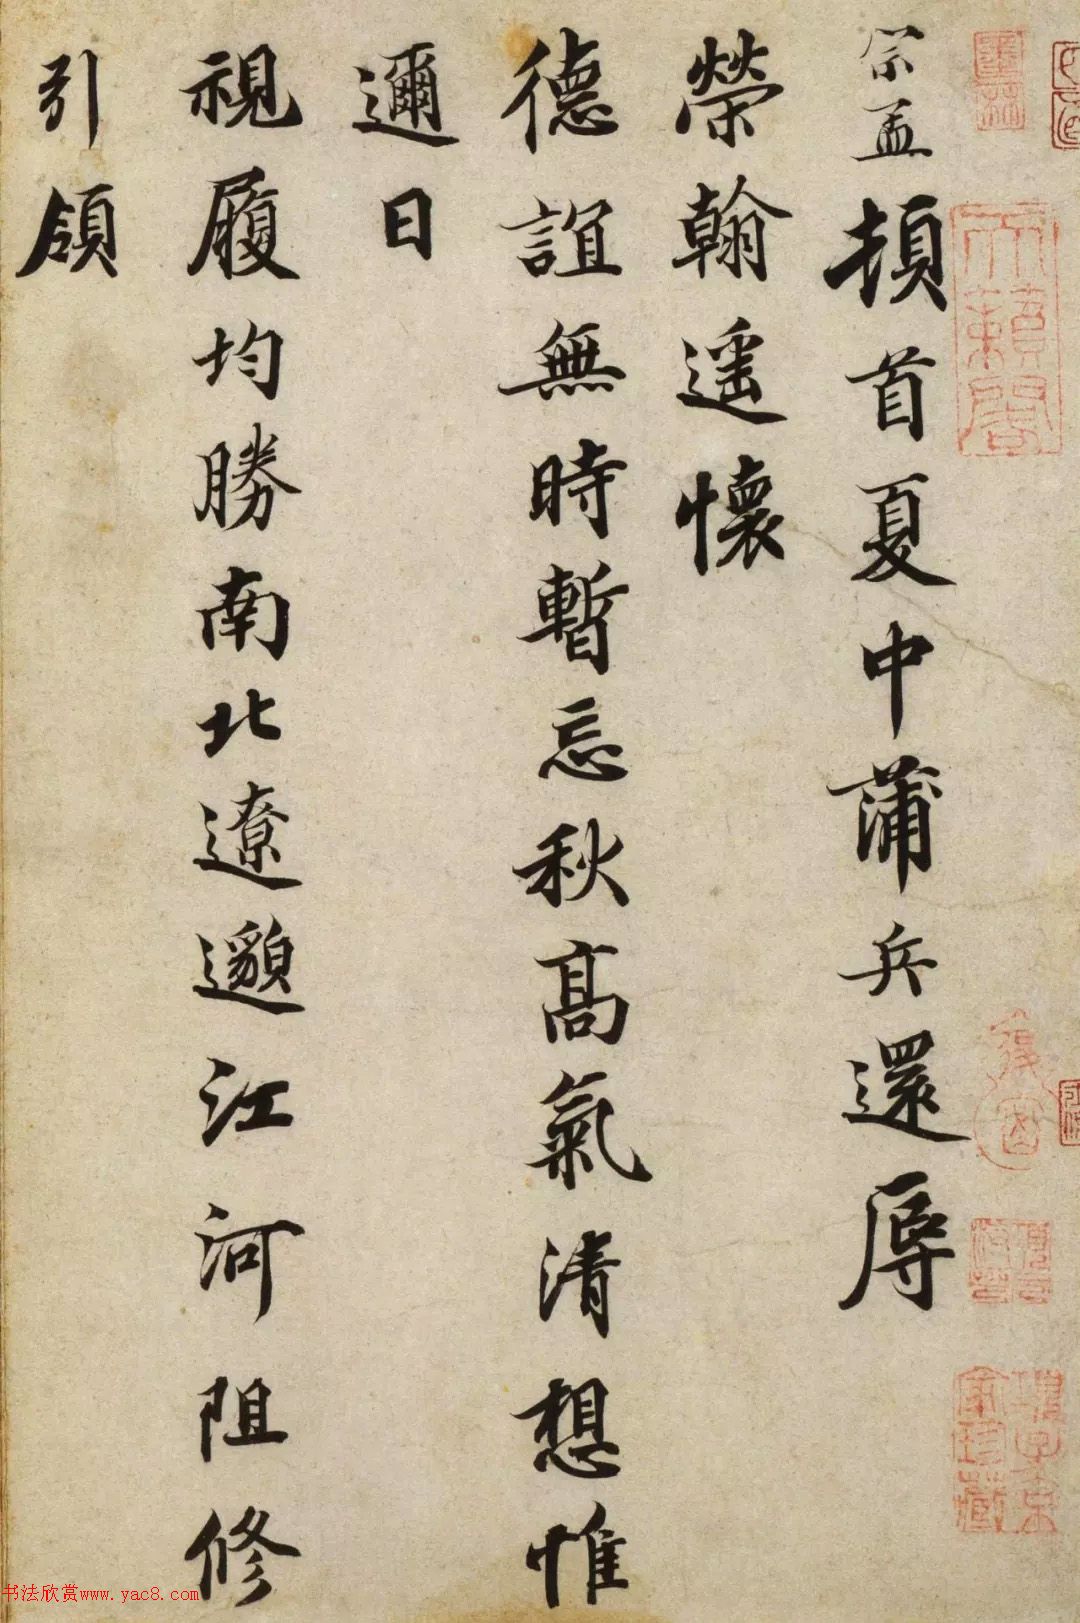 宗孟頓首夏中蒲兵還辱
榮翰遥懷
德誼無時暫忘秋髙氣清想惟
邇日
視履均勝南北遼邈江河阻修
引領
天籟閣
书法欣赏www.yac8.com